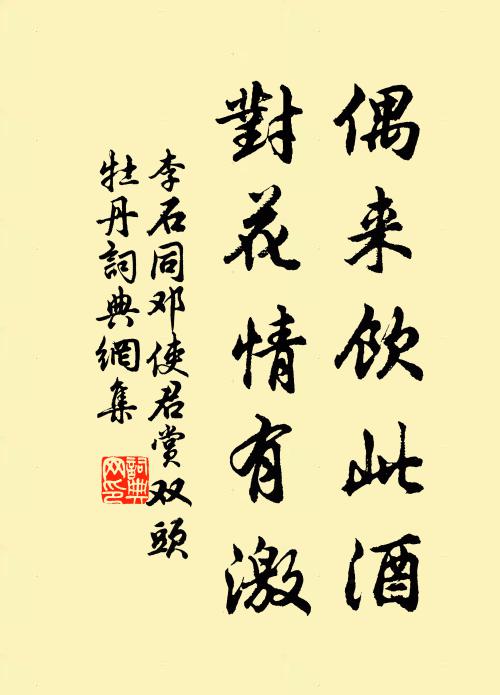 偶来饮此酒
對花情有激
李石同邓使君赏双頭
牡丹詞典網集
詞典网印